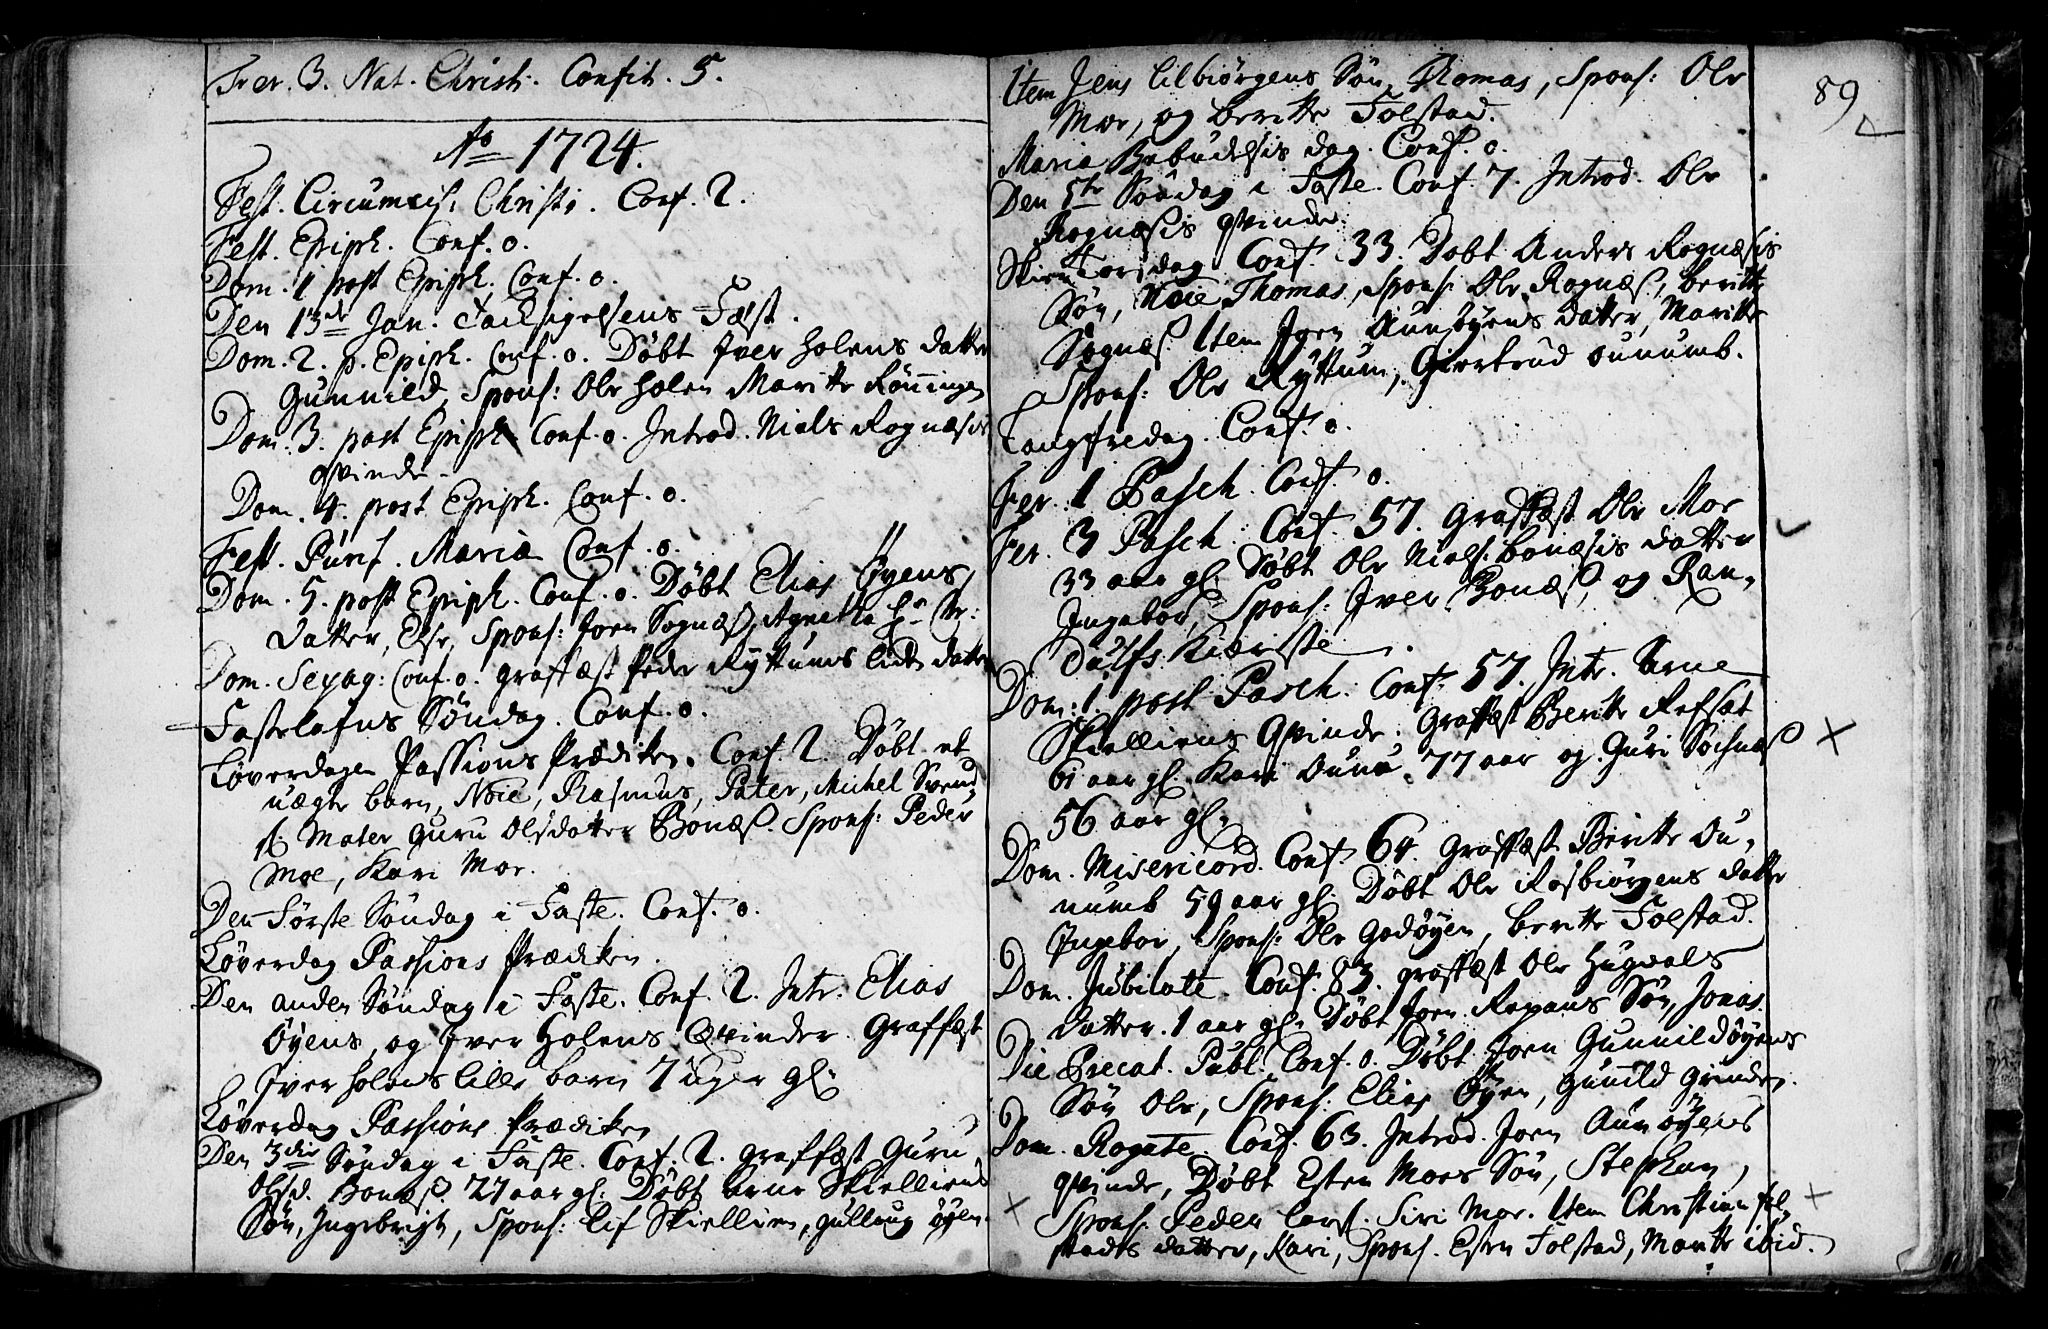 Fer. 3. Nat. Christi. Confit. 5.
Ao 1724.
Fest. Circumcis: Christi. Conf. 2.
Fest. Epiph. Conf. 0.
Dom. 1 post Epiph. Conf. 0.
Den 13de Jan. Tacksigelsens Fæst.
Dom. 2. p. Epiph. Conf. 0. Døbt Iver Holens datter
Gunnild, Spons: Ole Holen Maritte Rønningen
Dom. 3. post Epiph. Conf. 0. Introd. Niels Rognæsis
qvinde.
Dom. 4. post Epiph. Conf. 0.
Fest. Purif. Mariæ Conf. 0.
Dom. 5. post Epiph. Conf. 0. Døbt Elias Øyens
datter, Else, Spons: Joen Sognæß, Agnetha
Dom. Sexag: Conf. 0. graffæst Peder Ryttums lidle datter
Fastelafns Søndag. Conf. 0.
Løverdagen Passions Prædiken. Conf. 2. Døbt et
uægte barn, Noie, Rasmus, Pater, Michel Svend
sf. Mater Guru Olsdatter Bonæß. Spons: Peder
Moe, Kari Moe.
Den Første Søndag i Faste. Conf. 0.
Løverdag Passions Prædiken.
Den anden Søndag i Faste. Conf. 2. Intr. Elias
Øyens, og Iver Holens Qvinder. Graffæst
Iver Holens lille barn 7 uger gl.
Løverdag Passions Prædiken
Den 3die Søndag i Faste. Conf. 2. graffæst Guru
Olsd. Bonæß. 27 aar gl. Døbt Arne Skielliens
Søn, Ingebrigt, Spons: Lif Skiellien, Gullaug Øyen.
89
Item Jens Lilbiørgens Søn, Thomas, Spons: Ole
Moe, og Beritte Folstad.
Mariæ Bebudelsis dag. Conf. 0.
Den 5te Søndag i Faste. Conf. 7. Introd. Ole
Rognæsis qvinde.
Skiertorsdag Conf. 33. Døbt Anders Rognæsis
Søn, Noie Thomas, Spons: Ole Rognæß, Beritte
Sognæß. Item Joen Aunøyens datter, Maritte
Spons: Ole Ryttum, Giertrud Ounumb.
Langfredag. Conf. 0.
Fer. 1 Pasch. Conf. 0.
Fer. 3 Pasch. Conf. 57. Graffæst Ole Moe
33 aar gl. Døbt Ole Niels. Bonæsis datter
Ingebor, Spons: Iver Bonæß, og Ran-
dulfs Kiæriste.
Dom. 1. post Pasch. Conf. 57. Intr. Arne
Skielliens Qvinde. Graffæst Beritte Refsæt
61 aar gl. Kari Ounu. 77 aar og Guri Sochnæß
56 aar gl.
Dom. Misericord. Conf. 64. Graffæst Beritte Ou-
numb 59 aar gl. Døbt Ole Rosbiørgens datter
Ingebor, Spons: Ole Godøyen, Beritte Folstad.
Dom. Jubilate. Conf. 83. graffæst Ole Hugvals
datter. 1 aar gl. Døbt Joen Reppans Søn, Jonas.
Die Precat. Publ. Conf. 0. Døbt Joen Gunnildøyens
Søn Ole, Spons: Elias Øyen, Gunild Grinden.
Dom. Rogate. Conf. 63. Introd. Joen Aunøyens
qvinde, Døbt Esten Moes Søn, Stephan,
Spons. Peder Lars. Siri Moe. Item Christian Fol-
stads datter, Kari, Spons. Esten Folstad, Maritte ibid.